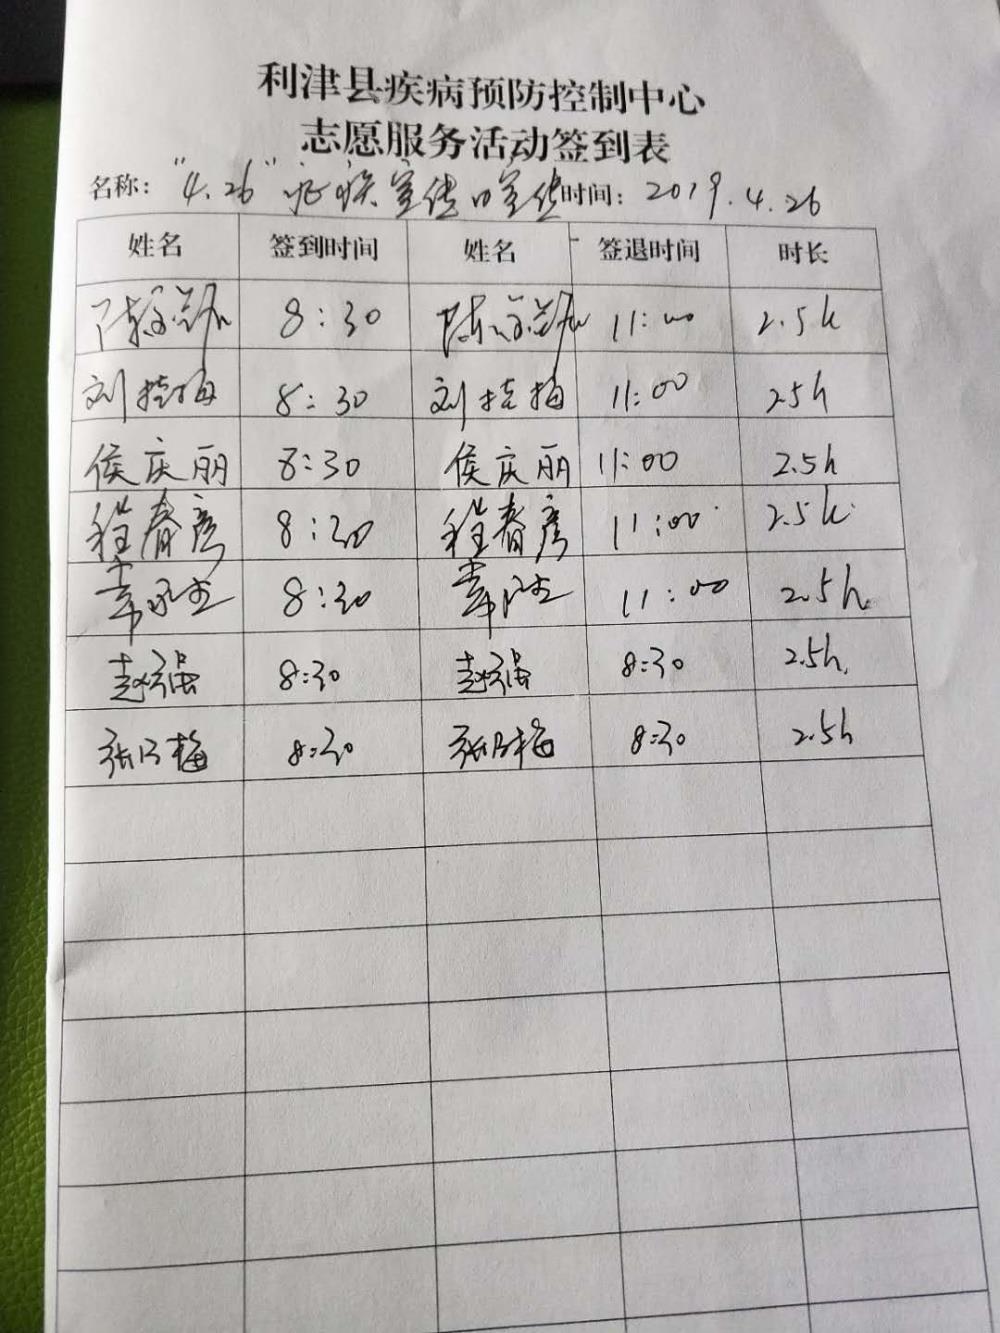 利津县疾病预防控制中心
志愿服务活动签到表
名称："4.26" 疟疾宣传日宣传 时间：2019.4.26
姓名 签到时间 姓名 签退时间 时长
陈 8:30 陈 11:00 2.5h
刘桂梅 8:30 刘桂梅 11:00 25h
侯庆丽 8:30 侯庆丽 11:00 2.5h
程春彦 8:30 程春彦 11:00 2.5h
8:30 11:00 2.5h.
赵强 8:30 赵强 8:30 2.5h.
张乃梅 8:30 张乃梅 8:30 2.5h